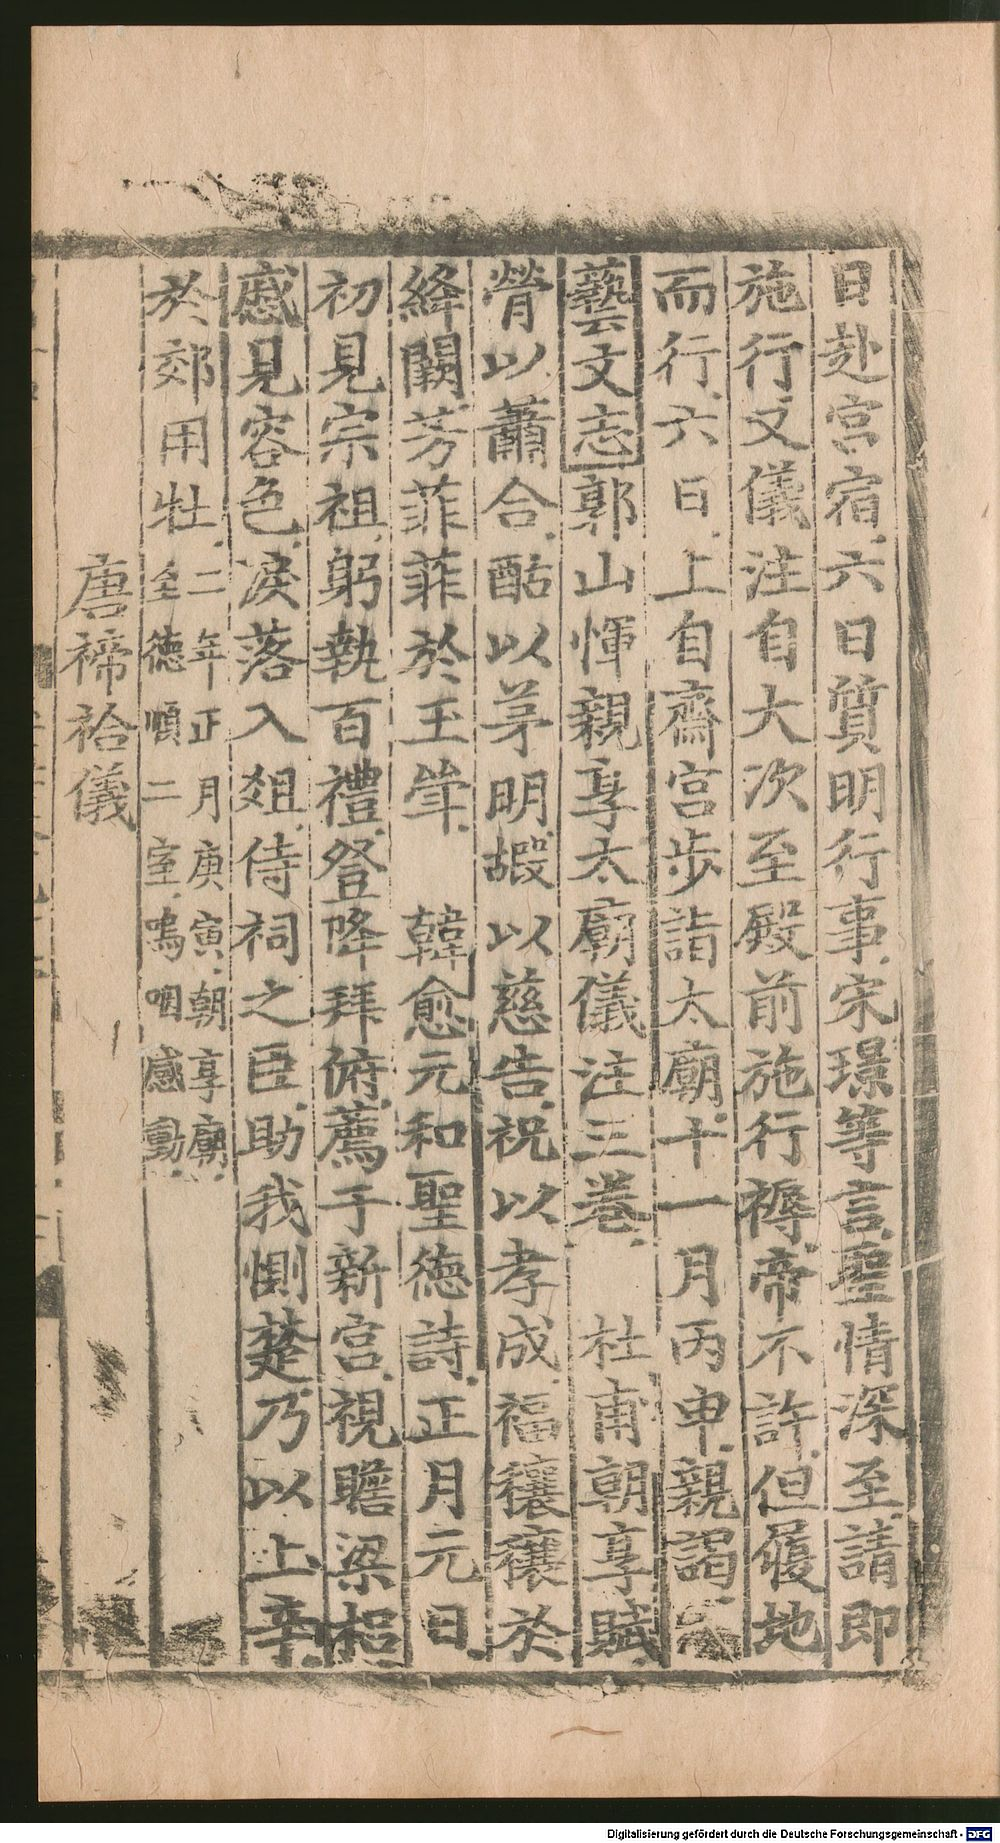 日赴宮宿六日質明行事宋璟等言聖情深至請即
施行又儀注自大次至殿前施行褥帝不許但履地
而行六日上自齋宮步詣太廟十一月丙申親謁
藝文志郭山惲親享太廟儀注三卷 杜甫朝享賦
膋以蕭合酤以茅明嘏以慈告祝以孝成福穰穰於
絳闕芳菲菲於玉斝 韓愈元和聖德詩正月元日
初見宗祖躬執百禮登降拜俯薦于新宮視瞻梁梠
慼見容色淚落入俎侍祠之臣助我惻楚乃以上辛
於郊用牡
二年正月庚寅朝享廟
至德順二室嗚咽感動
唐禘祫儀
Digitalisierung gefördert durch die Deutsche Forschungsgemeinschaft - DFG